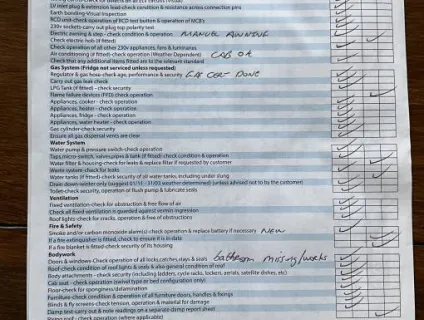 LV inlet plug & extension lead-check condition & resistance across connection pins
Earth bonding-Visual inspection
RCD unit-check operation of RCD test button & operation of MCB's
230v sockets-carry out plug top polarity test
Electric awning & step - check condition & operation MANUAL AWNING
Check electric hub (if fitted)
Check operation of all other 230v appliances, fires & luminaires
Air conditioning (if fitted)-check operation (Weather Dependent) CAB OK
Check that any additional items fitted are to the relevant standard
Gas System (Fridge not serviced unless requested)
Regulator & gas hose-check age, performance & security GAS CERT DONE
Carry out gas leak check
LPG Tank (if fitted) - check security
Flame failure devices (FFD) check operation
Appliances, cooker - check operation
Appliances, heater - check operation
Appliances, fridge - check operation
Appliances, water heater - check operation
Gas cylinder-check security
Ensure all gas dispersal vents are clear
Water System
Water pump & pressure switch-check operation
Taps, micro-switch, valves, pipes & tank (if fitted)-check condition & operation
Water filter & housing-check for leaks & replace filter if requested by customer
Waste system-check for leaks
Water tanks (if fitted)-check security of all water tanks, including under slung
Drain down-winter only (suggest 01/11 - 31/03 weather determined) (unless advised not to by the customer)
Toilet-check security, operation of flush pump & lubricate seals
Ventilation
Fixed ventilation-check for obstruction & free flow of air
Check all fixed ventilation is guarded against vermin ingression
Roof lights-check for cracks, operation & free of obstruction
Fire & Safety
Smoke and/or carbon monoxide alarm(s)-check operation & replace battery if necessary NEW
If a fire extinguisher is fitted, check to ensure it is in date
If a fire blanket is fitted-check security of its housing
Bodywork
Doors & windows-Check operation of all locks catches, stays & seals bathroom missing/works
Roof-check condition of roof lights & seals & also general condition of roof
Body attachments - check security (including ladders, cycle racks, locker, aerials, satellite dishes, etc)
Cab seat - check operation (swivel type or bed configuration only)
Floor-check for sponginess/delamination
Furniture-check condition & operation of all furniture doors, handles & fixings
Blinds & fly screens-check tension, operation & material for damage
Damp test-carry out & note readings on a separate damp report sheet
roof - check operation (where applicable)